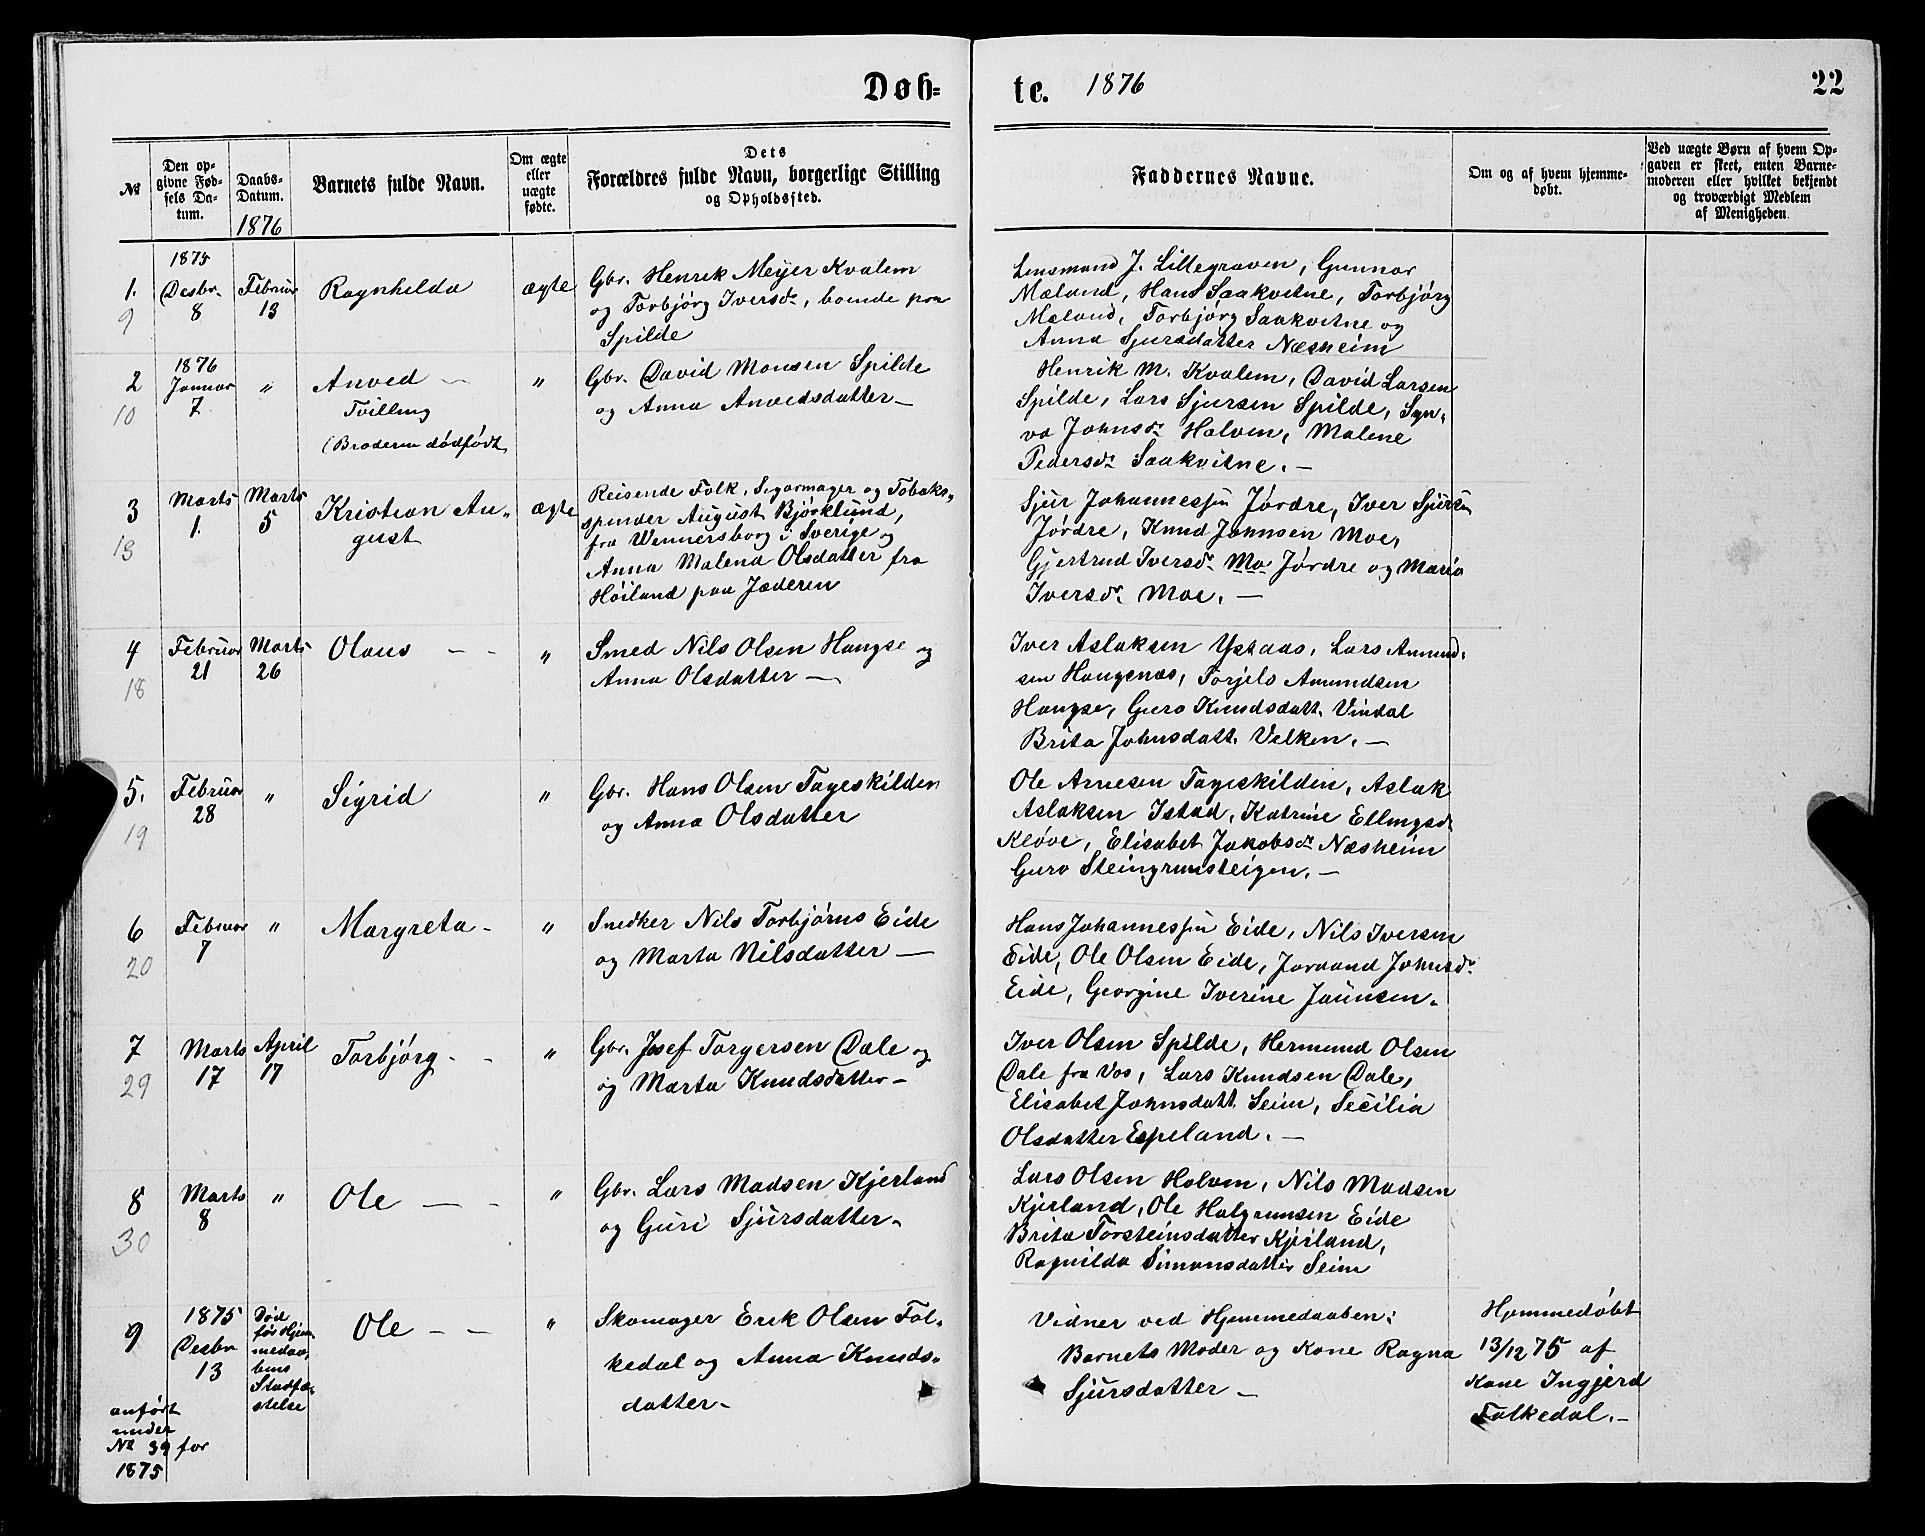 Døb-
te. 1876
22
№
Den op-
givne Fød-
sels Da-
tum.
Daabs-
Datum.
1876
Barnets fulde Navn.
Om ægte
eller
uægte
fødte.
Dets
Forældres fulde Navn, borgerlige Stilling
og Opholdssted.
Faddernes Navne.
Om og af hvem hjemme-
døbt.
Ved uægte Børn af hvem Op-
gaven er skeet, enten Barne-
moderen eller hvilket bekjendt
og troværdigt Medlem
af Menigheden.
1.
9
1875
Desbr.
8
Februar
13
Ragnhilda
ægte
Gbr. Henrik Meyer Kvalem
og Torbjørg Iversdr., boende paa
Spilde
Lensmand J. Lillegraven, Gunnar
Mæland, Hans Saakvitne, Torbjørg
Mæland, Torbjørg Saakvitne og
Anna Sjursdatter Næsheim
2
10
1876
Januar
7
"
Anved —
Tvilling
(Broderen dødfødt
"
Gbr. David Monsen Spilde
og Anna Anvedsdatter —
Henrik M. Kvalem, David Larsen
Spilde, Lars Sjursen Spilde, Syn-
va Johnsdr. Halven, Malene
Pedersdr. Saakvitne. —
3
13
Marts
1.
Marts
5
Kristian Au-
gust
ægte
Reisende Folk, Sigarmager og Tobaks-
spinder August Bjørklund,
fra Wennersborg i Sverige og
Anna Malena Olsdatter fra
Høiland paa Jæderen
Sjur Johannessen Jørdre, Iver Sjursen
Jørdre, Knud Johnsen Moe,
Gjertrud Iversdr. Mo Jørdre og Maria
Iversdr. Moe. —
4
18
Februar
21
Marts
26
Olaus — —
"
Smed Nils Olsen Haugse og
Anna Olsdatter —
Iver Aslaksen Ystaas, Lars Amund-
sen Haugsnæs, Torjels Amundsen
Haugse, Guro Knudsdatt. Vindal
Brita Johnsdatt. Velken. —
5.
19
Februar
28
"
Sigrid
"
Gbr. Hans Olsen Tageskilden
og Anna Olsdatter
Ole Arnesen Tageskilden, Aslak
Aslaksen Istad, Katrine Ellingsdr.
Kløve, Elisabet Jakobsdr. Næsheim
Guro Steingrumsteigen. —
6
20
Februar
7
"
Margreta -
"
Snedker Nils Torbjørns Eide
og Marta Nilsdatter —
Hans Johannessen Eide, Nils Iversen
Eide, Ole Olsen Eide, Joraand Johnsdr.
Eide, Georgine Iverine Jaunsen.
7
29
Marts
17
April
17
Torbjørg - -
"
Gbr. Josef Torgersen Dale og
og Marta Knudsdatter —
Iver Olsen Spilde, Hermund Olsen
Dale fra Vos, Lars Knudsen Dale,
Elisabet Johnsdatt. Seim, Secilia
Olsdatter Espeland. —
8
30
Marts
8
"
Ole — -
"
Gbr. Lars Madsen Kjerland
og Guri Sjursdatter -
Lars Olsen Holven, Nils Madsen
Kjerland, Ole Halgrunsen Eide
Brita Torsteinsdatter Kjerland,
Ragnilda Simonsdatter Seim
9
anført
under
№ 39 for
1875
1875
Desbr
13
Død
før Hjem-
medaa-
bens
Stadfæ-
stelse
Ole - —
"
Skomager Erik Olsen Fol-
kedal og Anna Knuds-
datter -
Vidner ved Hjemmedaaben:
Barnets Moder og Kone Ragna
Sjursdatter —
Hjemmedøbt
13/12 75 af
Kone Ingjerd
Folkedal. -